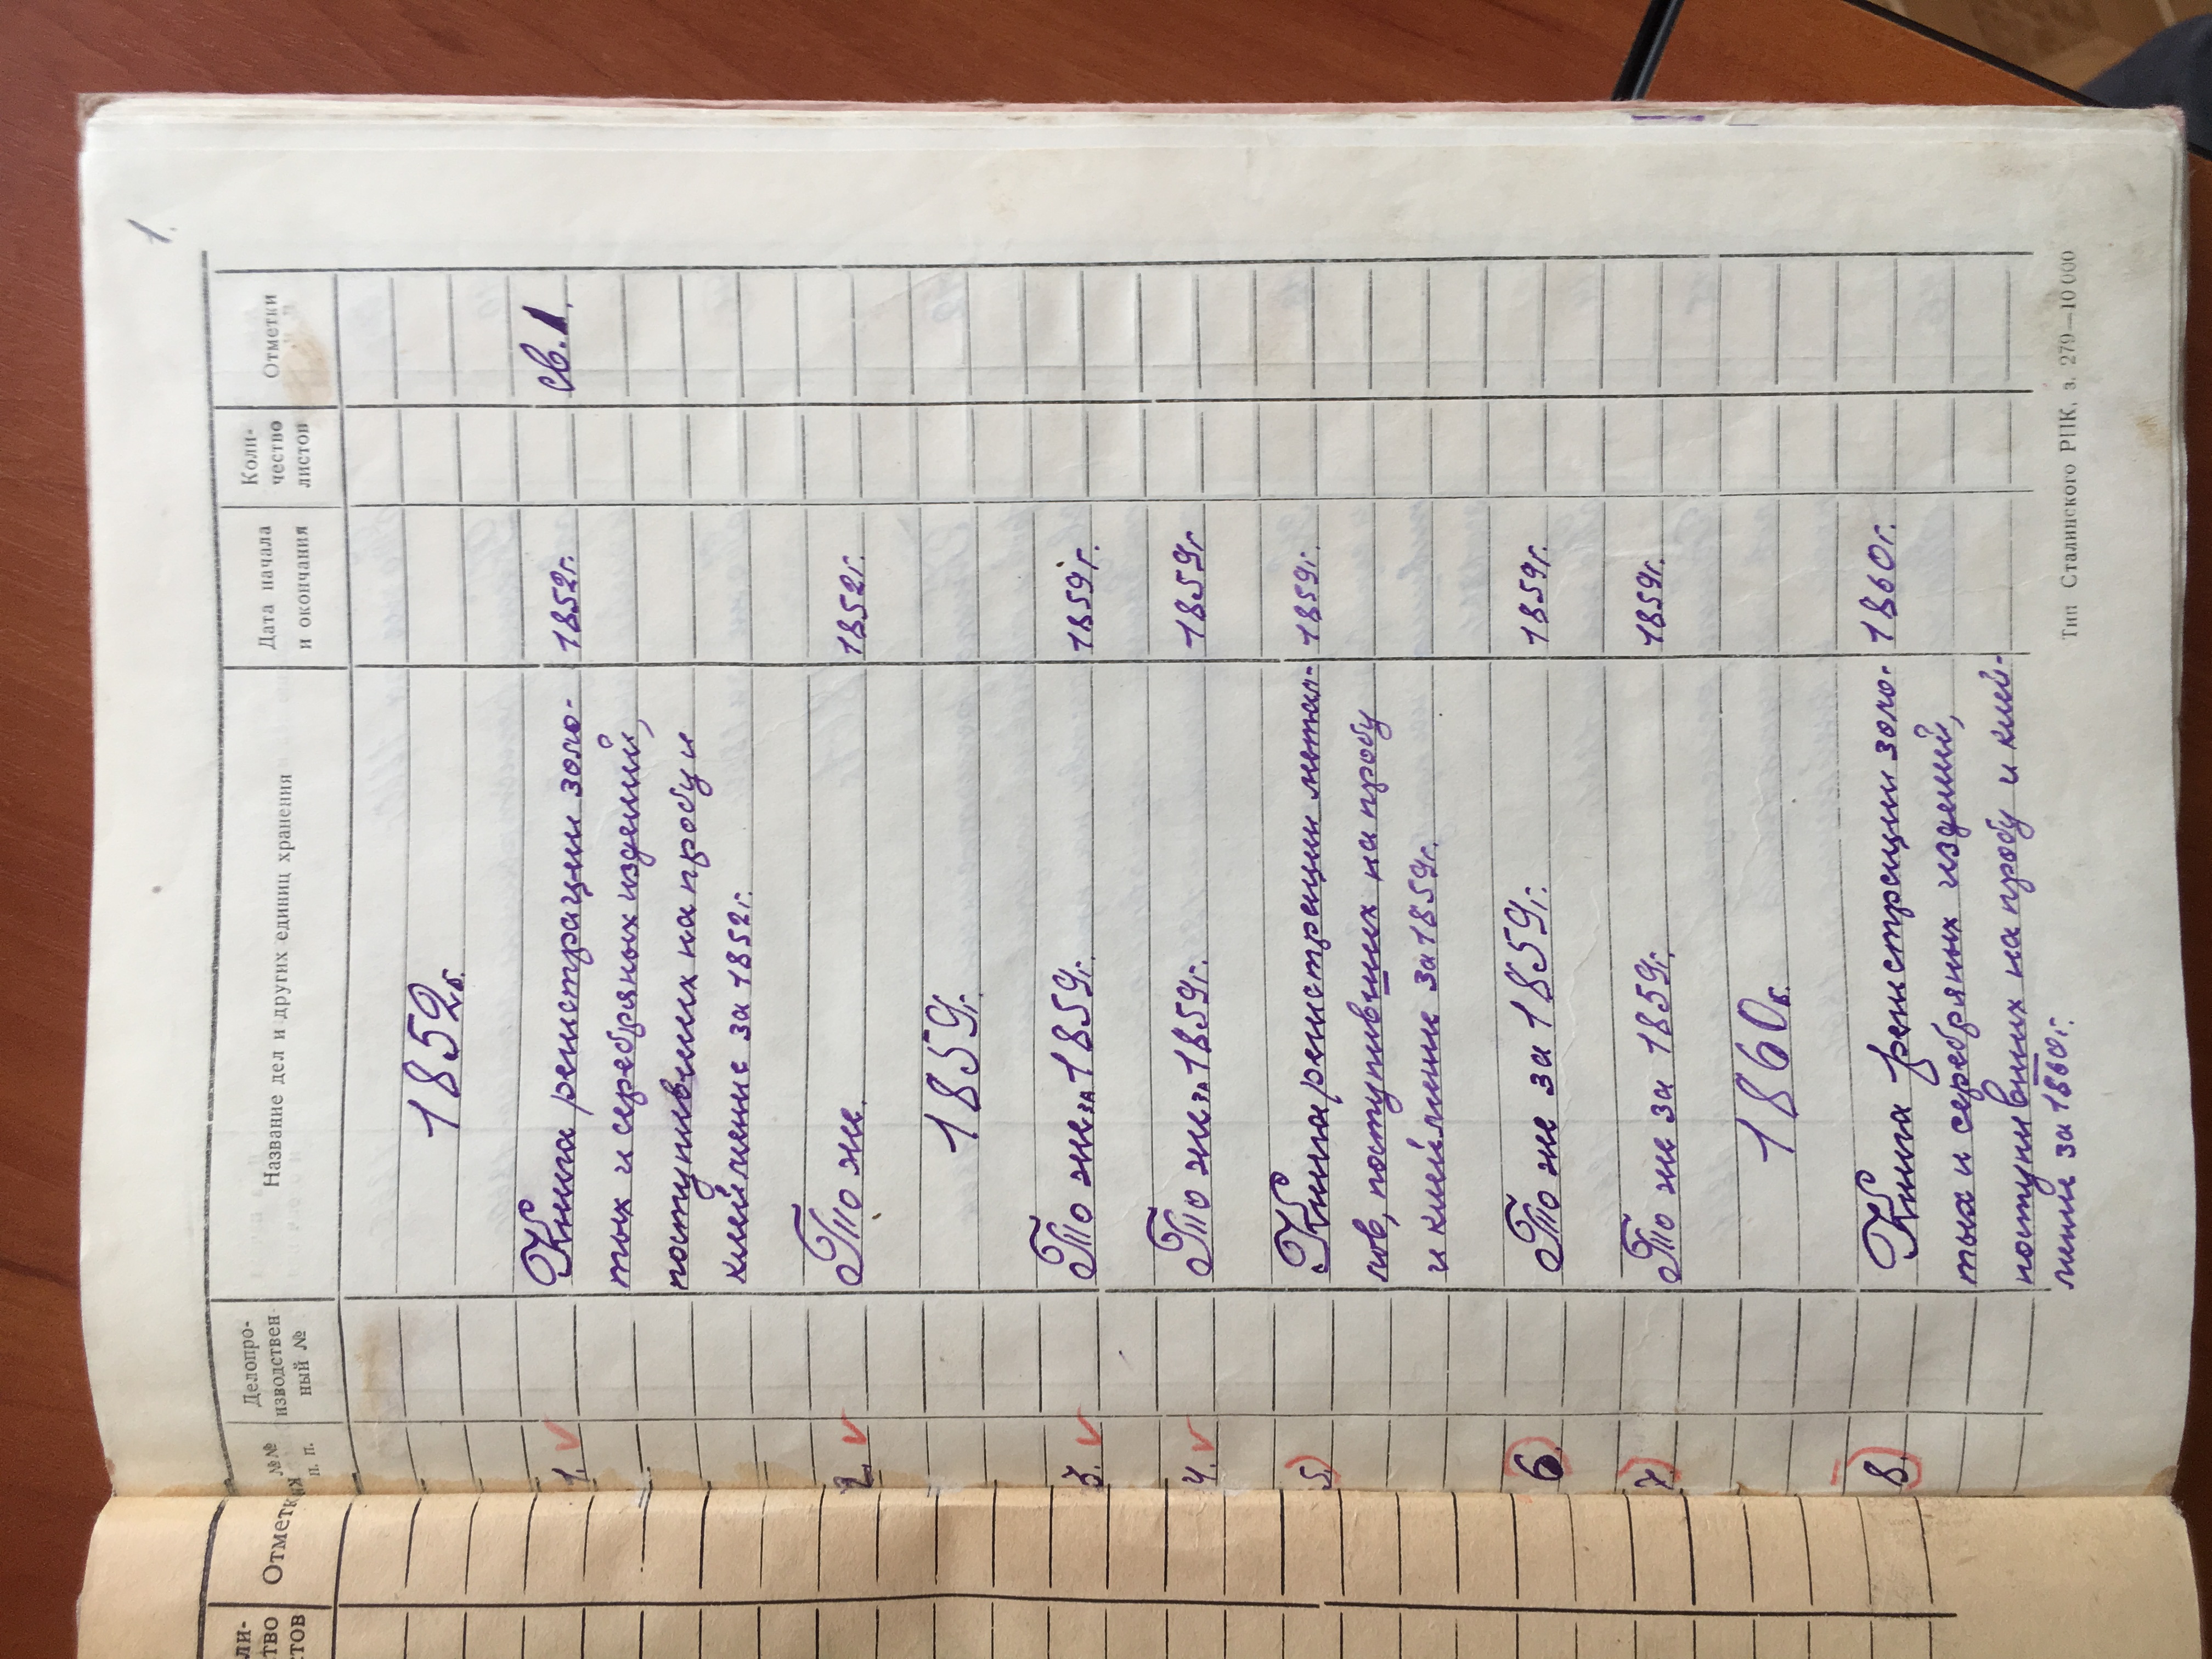 1.
№№ п. п.
Делопро-
изводствен-
ный №
Название дел и других единиц хранения
Дата начала
и окончания
Коли-
чество
листов
Отметки
1852г.
1. Книга регистрации золо- 1852г. св. 1.
тых и серебряных изделий,
поступивших на пробу и
клеймение за 1852г.
2. То же. 1852г.
1859г.
3. То же за 1859г. 1859г.
4. То же за 1859г. 1859г
5. Книга регистрации метал- 1859г.
лов, поступивших на пробу
и клеймение за 1859г.
6. То же за 1859г. 1859г.
7. То же за 1859г. 1859г.
1860г.
8. Книга регистрации золо- 1860г.
тых и серебряных изделий,
поступивших на пробу и клей-
мение за 1860г.
Тип Сталинского РПК, з. 279—10 000
Отметки
ли-
тво
тов